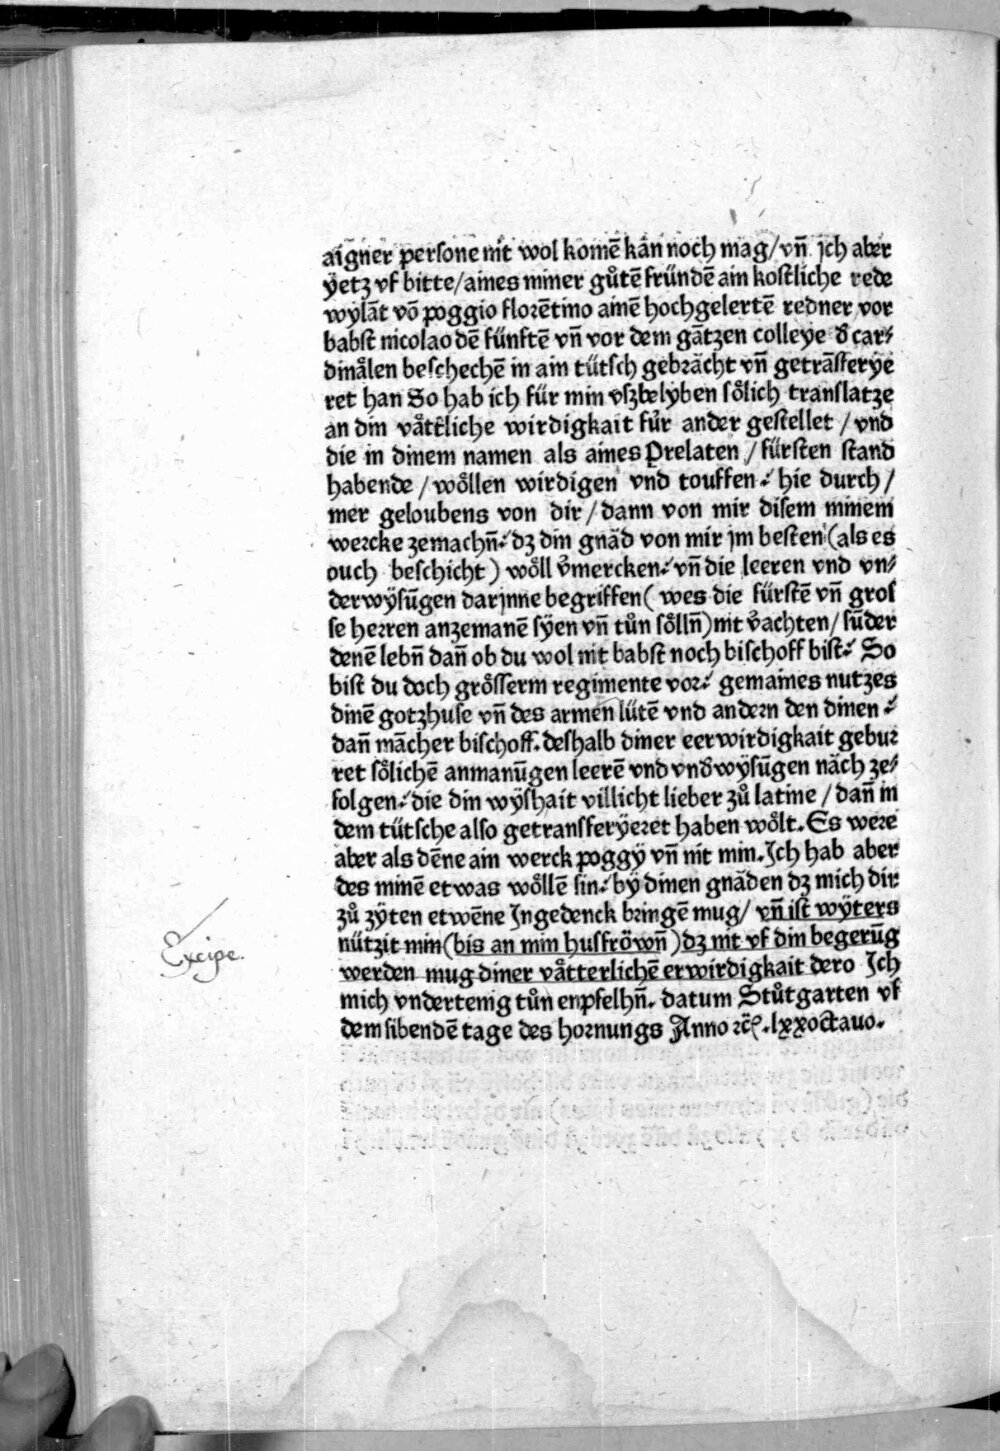 aigner persone nit wol komē kan noch mag/ vn̄ jch aber
ÿetz vf bitte/ aines miner gůtē fründē ain kostliche rede
wylāt vō poggio florētino ainē hochgelertē redner vor
babst nicolao dē fünftē vn̄ vor dem gātzen colleye d̕ car⸗
dinålen beschechē in ain tütsch gebrǎcht vn̄ getrāsferÿe
ret han So hab ich für min vszbelyben sőlich translatze
an din våttliche wirdigkait fůr ander gestellet / vnd
die in dinem namen als aines Prelaten / fürsten stand
habende / wőllen wirdigen vnd touffen. hie durch /
mer geloubens von dir / dann von mir disem minem
wercke zemachn̄. dz din gnǎd von mir jm besten (als es
ouch beschicht) wőll v̕mercken. vn̄ die leeren vnd vn⸗
derwÿsūgen darjnne begriffen (wes die fürstē vn̄ gros
se herren anzemanē sÿen vn̄ tůn sőlln̄) nit v̕achten/ sūder
denē lebn̄ dan̄ ob du wol nit babst noch bischoff bist. So
bist du doch grősserm regimente vor. gemaines nutzes
dinē gotzhuse vn̄ des armen lütē vnd andern den dinen.
dan̄ mācher bischoff. deshalb diner eerwirdigkait gebur
ret sőlichē anmanūgen leerē vnd vnd̕wÿsūgen nǎch ze⸗
folgen. die din wÿshait villicht lieber zů latine / dan̄ in
dem tütsche also getransferÿeret haben wőlt. Es were
aber als dēne ain werck poggÿ vn̄ nit min. Jch hab aber
des minē etwas wőllē sin. bÿ dinen gnǎden dz mich dir
zů zÿten etwēne Jngedenck bringē mug/ vn̄ ist wÿters
nützit min (bis an min husfrőwn̄) dz nit vf din begerūg
werden mug diner våtterlichē erwirdigkait dero Jch
mich vndertenig tůn enpfelhn̄. datum Stůtgarten vf
dem sibendē tage des hornungs Anno ꝛc̄. lxxoctauo.
Excipe.